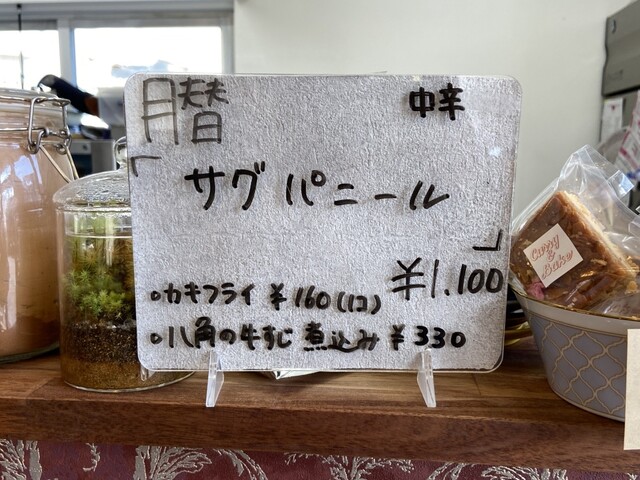 月替
中辛
「サグパニール」
¥1.100
・カキフライ ¥160(1コ)
・八角の牛すじ煮込み ¥330
Curry
&